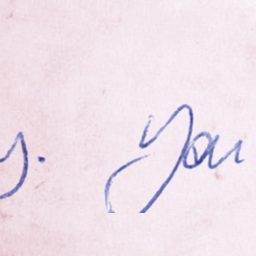 y. You